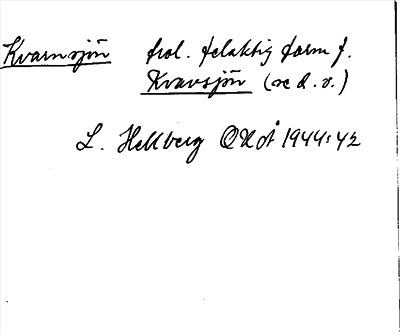 Kvarnsjön trol. felaktig form f.
Kvavsjön (se d. o.)
L. Hellberg OHÅ 1944:42